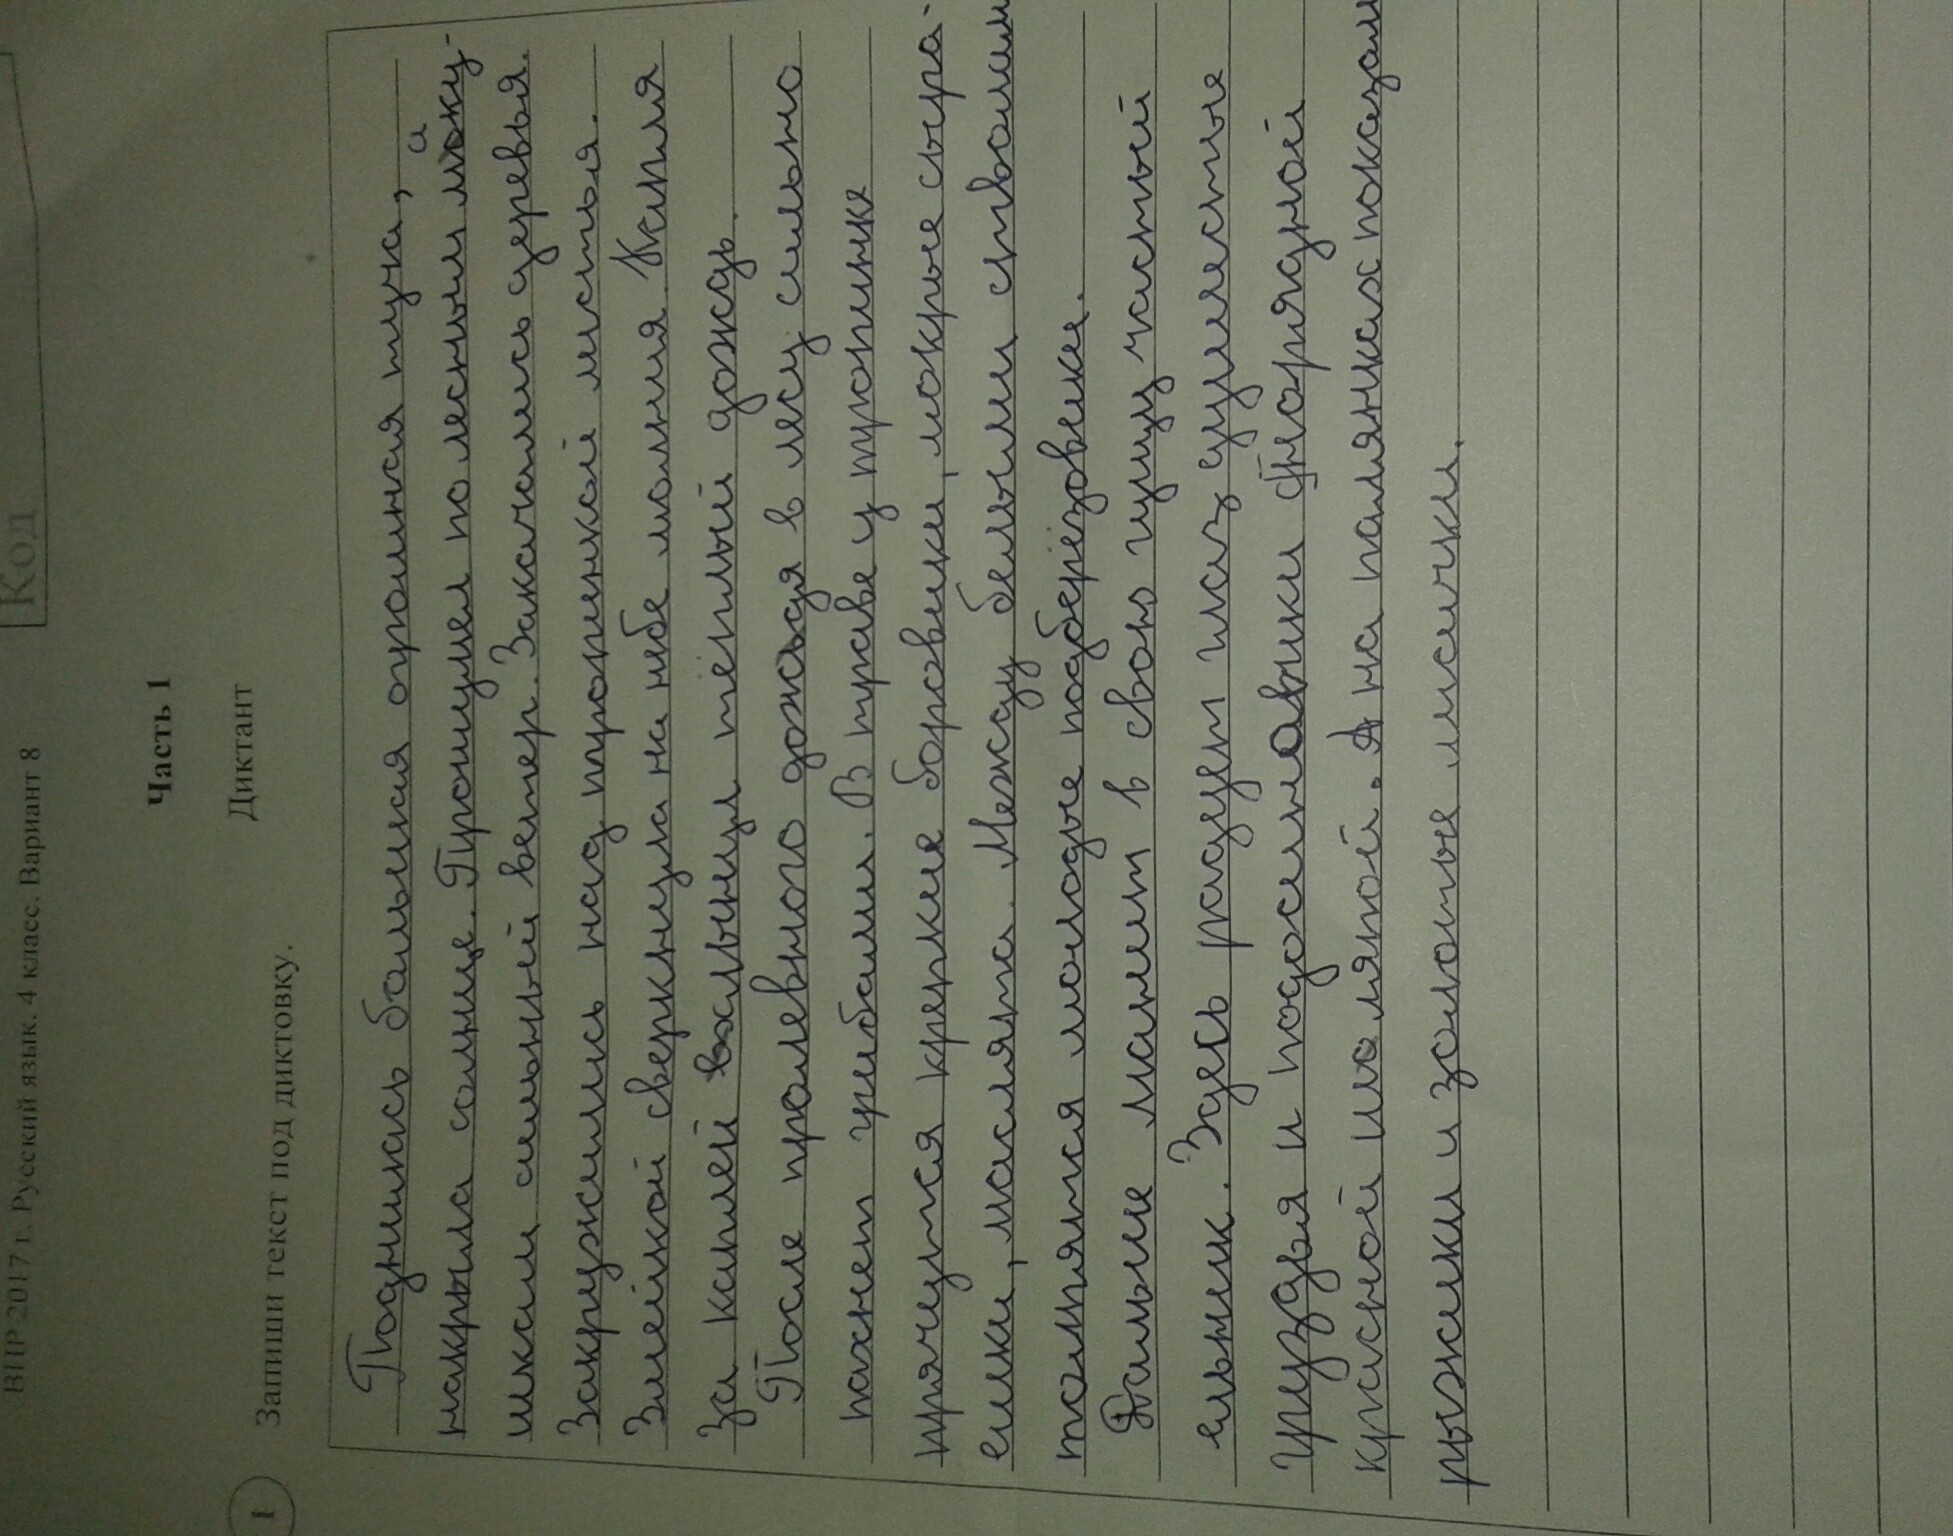 Код
ВПР 2017 г. Русский язык. 4 класс. Вариант 8
Часть 1
Диктант
1
Запиши текст под диктовку.
Поднилась большая огромная туча, и
накрыла солнце. Прошумел по лесным маку-
шкам сильный ветер. Закачались деревья.
Закружились над тропинкой листья.
Змейкой сверкнула на небе молния. Капля
за каплей хлынул тёплый дождь.
После проливного дождя в лесу сильно
пахнет грибами. В траве у тропинке
прячутся крепкие боровики, мокрые сыра-
ешки, маслята. Между белыми стволами
толпятся молодые подберёзовики.
Дальше манит в свою чащу частый
ельник. Здесь радуют глаз душестые
грузди и подосиновики с нарядной
красной шляпой. А на полянках показали
рыжики и золотые лисички.